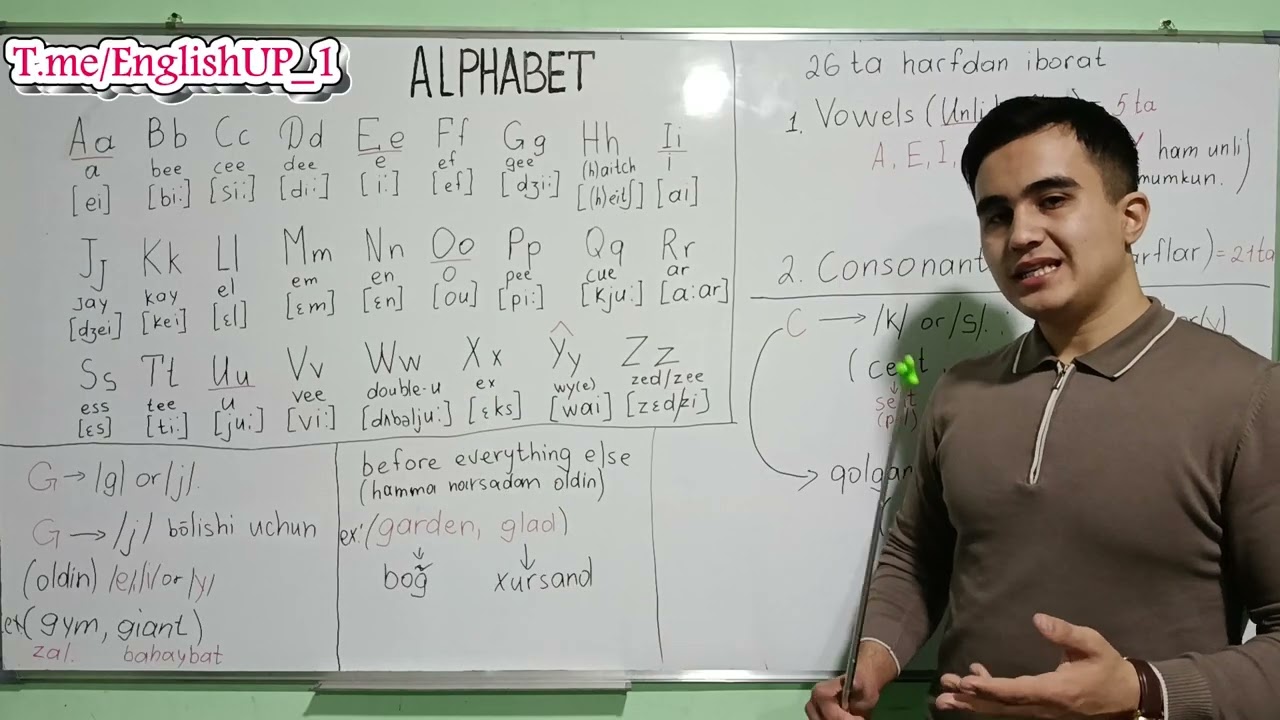 T.me/EnglishUP_1
ALPHABET
Aa Bb Cc Dd Ee Ff Gg Hh Ii
a bee cee dee e ef gee (h)aitch i
[ei] [bi:] [si:] [di:] [i:] [ef] [dʒi:] [(h)eitʃ] [aı]
Jj Kk Ll Mm Nn Oo Pp Qq Rr
jay kay el em en o pee cue ar
[dʒei] [kei] [ɛl] [ɛm] [ɛn] [ou] [pi:] [kju:] [a:ar]
Ss Tt Uu Vv Ww Xx Yy Zz
ess tee u vee double-u ex wy(e) zed/zee
[ɛs] [ti:] [ju:] [vi:] [dʌbəlju:] [ɛks] [wai] [zɛd/zi]
G → /g/ or /j/.
G → /j/ bōlishi uchun
(oldin) /e/,/i/ or /y/
ex( gym, giant)
zal. bahaybat
before everything else
(hamma narsadan oldin)
ex:(garden, glad)
bog̃ xursand
26 ta harfdan iborat
1. Vowels ( = 5 ta
A, E, I, ham unli
mumkun. )
2. Consonant = 21 ta
C → /k/ or /s/.